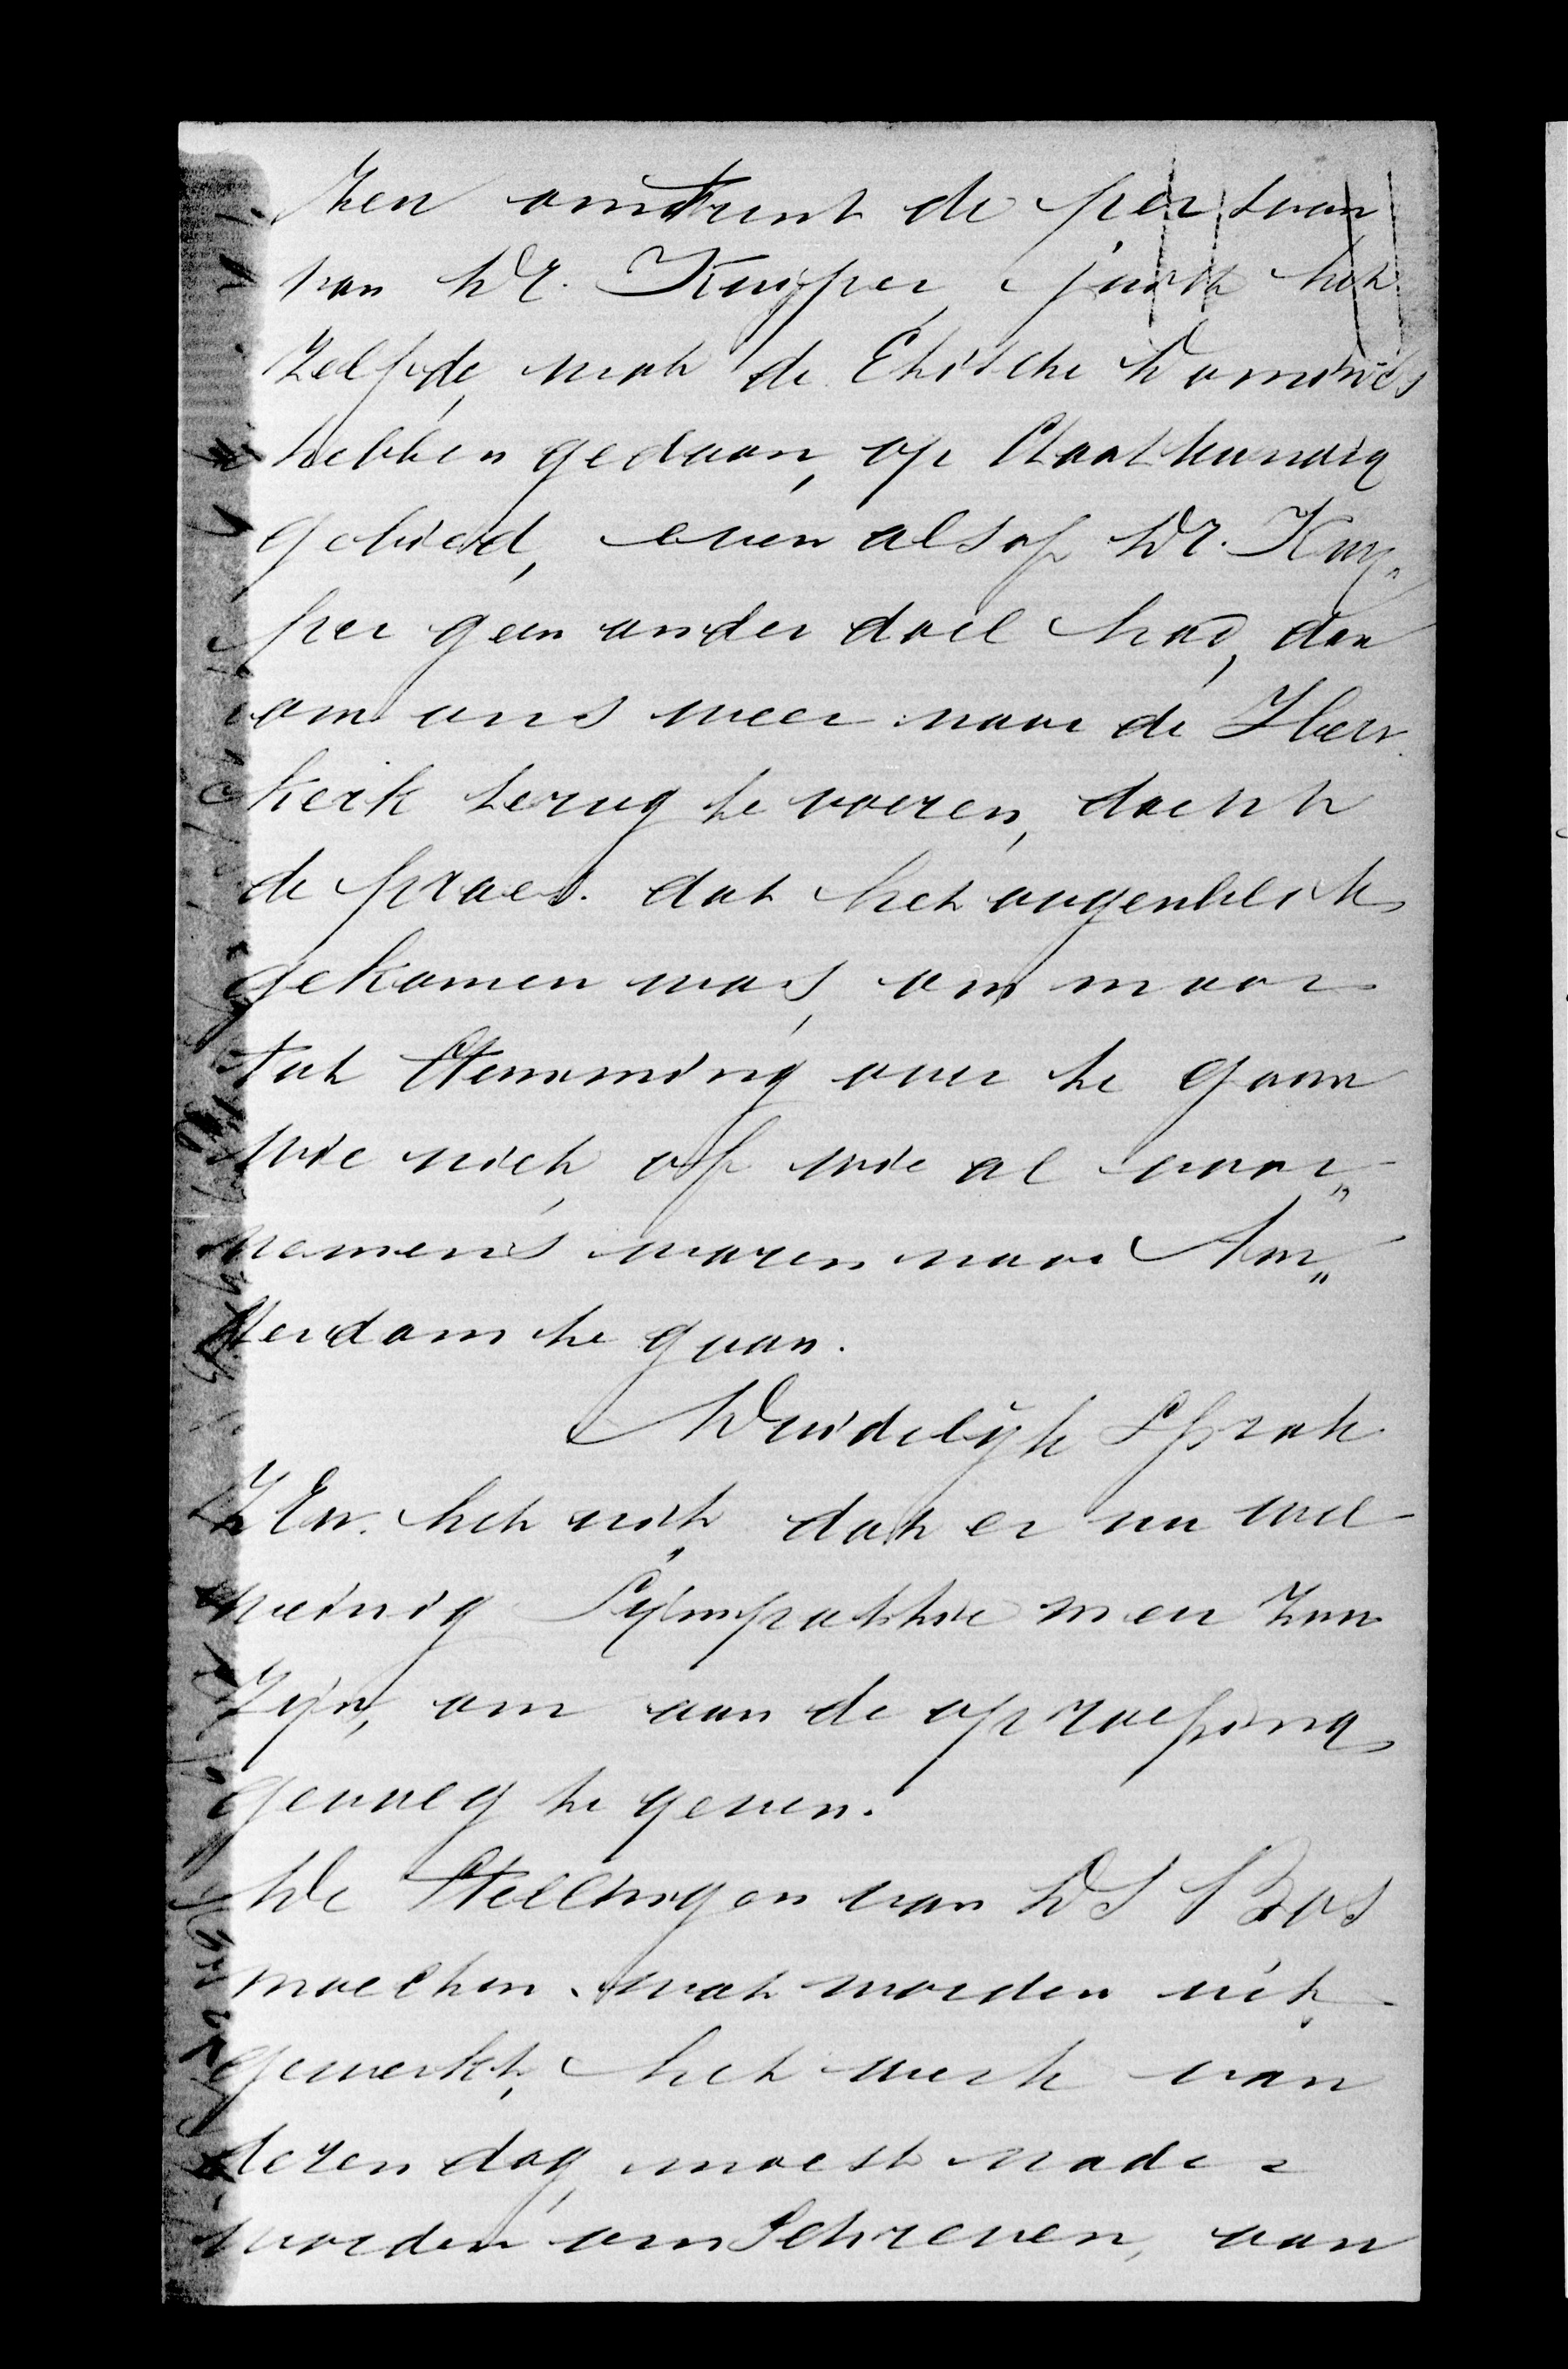 zen omtrent de persoon
van Dr. Kuijper, juist het
zelfde, wat de Ethische Dominé's
hebben gedaan, op Staatkundig
gebied, even alsof Dr. Kuy„
per geen ander doel had, dan
om ons weer naar de Herv.
kerk terug te voeren, dacht
de praes. dat het oogenblik
gekomen was, om maar
tot Stemming over te gaan
wie niet, of wie al voor„
nemens waren naar Am„
sterdam te gaan.
Duidelijk Sprak
ZEw. het uit, dat er nu wel
weinig Sijmpathie meer zou
zijn, om aan de oproeping
gevolg te geven.
De Stellingen van DS Bos
moesten wat worden uit
gewerkt, het werk van
dezen dag, moest nader
worden omSchreven, aan